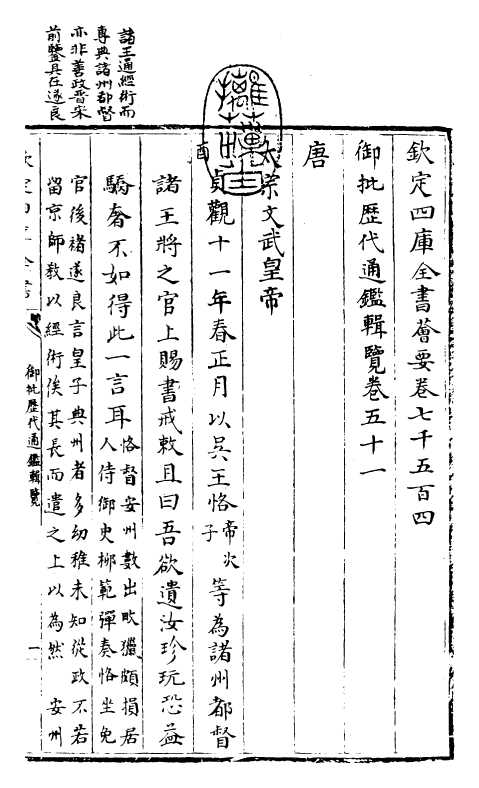 欽定四庫全書薈要卷七千五百四
御批歷代通鑑輯覽卷五十一
唐
太宗文武皇帝
酉
貞觀十一年春正月以吳王恪帝次子等為諸州都督
諸王將之官上賜書戒敕且曰吾欲遺汝珍玩恐益
驕奢不如得此一言耳恪督安州數出畋獵頗損居
人侍御史柳範彈奏恪坐免
官後褚遂良言皇子典州者多幼稚未知從政不若
留京師教以經術俟其長而遣之上以為然 安州
諸王通經術而
專典諸州都督
亦非善政晉宋
前鑒具在遂良
御批歷代通鑑輯覽
一